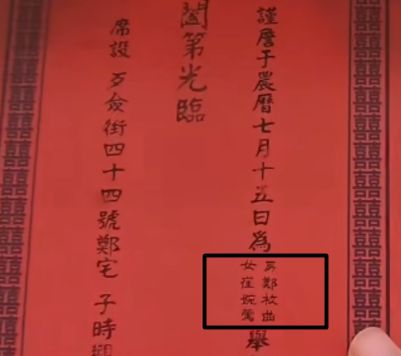 謹詹于農曆七月十五日為
鄭枚曲
女崔婉鶯
舉
闔第光臨
席設 歹僉街四十四號鄭宅 子時